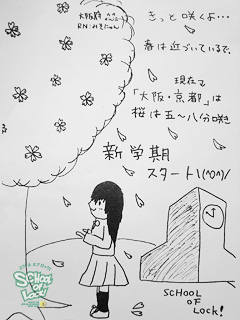 大阪府
RN:みきにゃん
きっと咲くよ…
春は近づいているで。
現在で
「大阪・京都」は
桜は五〜八分咲き
新学期
スタート\(^o^)/
SCHOOL
OF
LOCK!
SCHOOL
OF
LOCK!